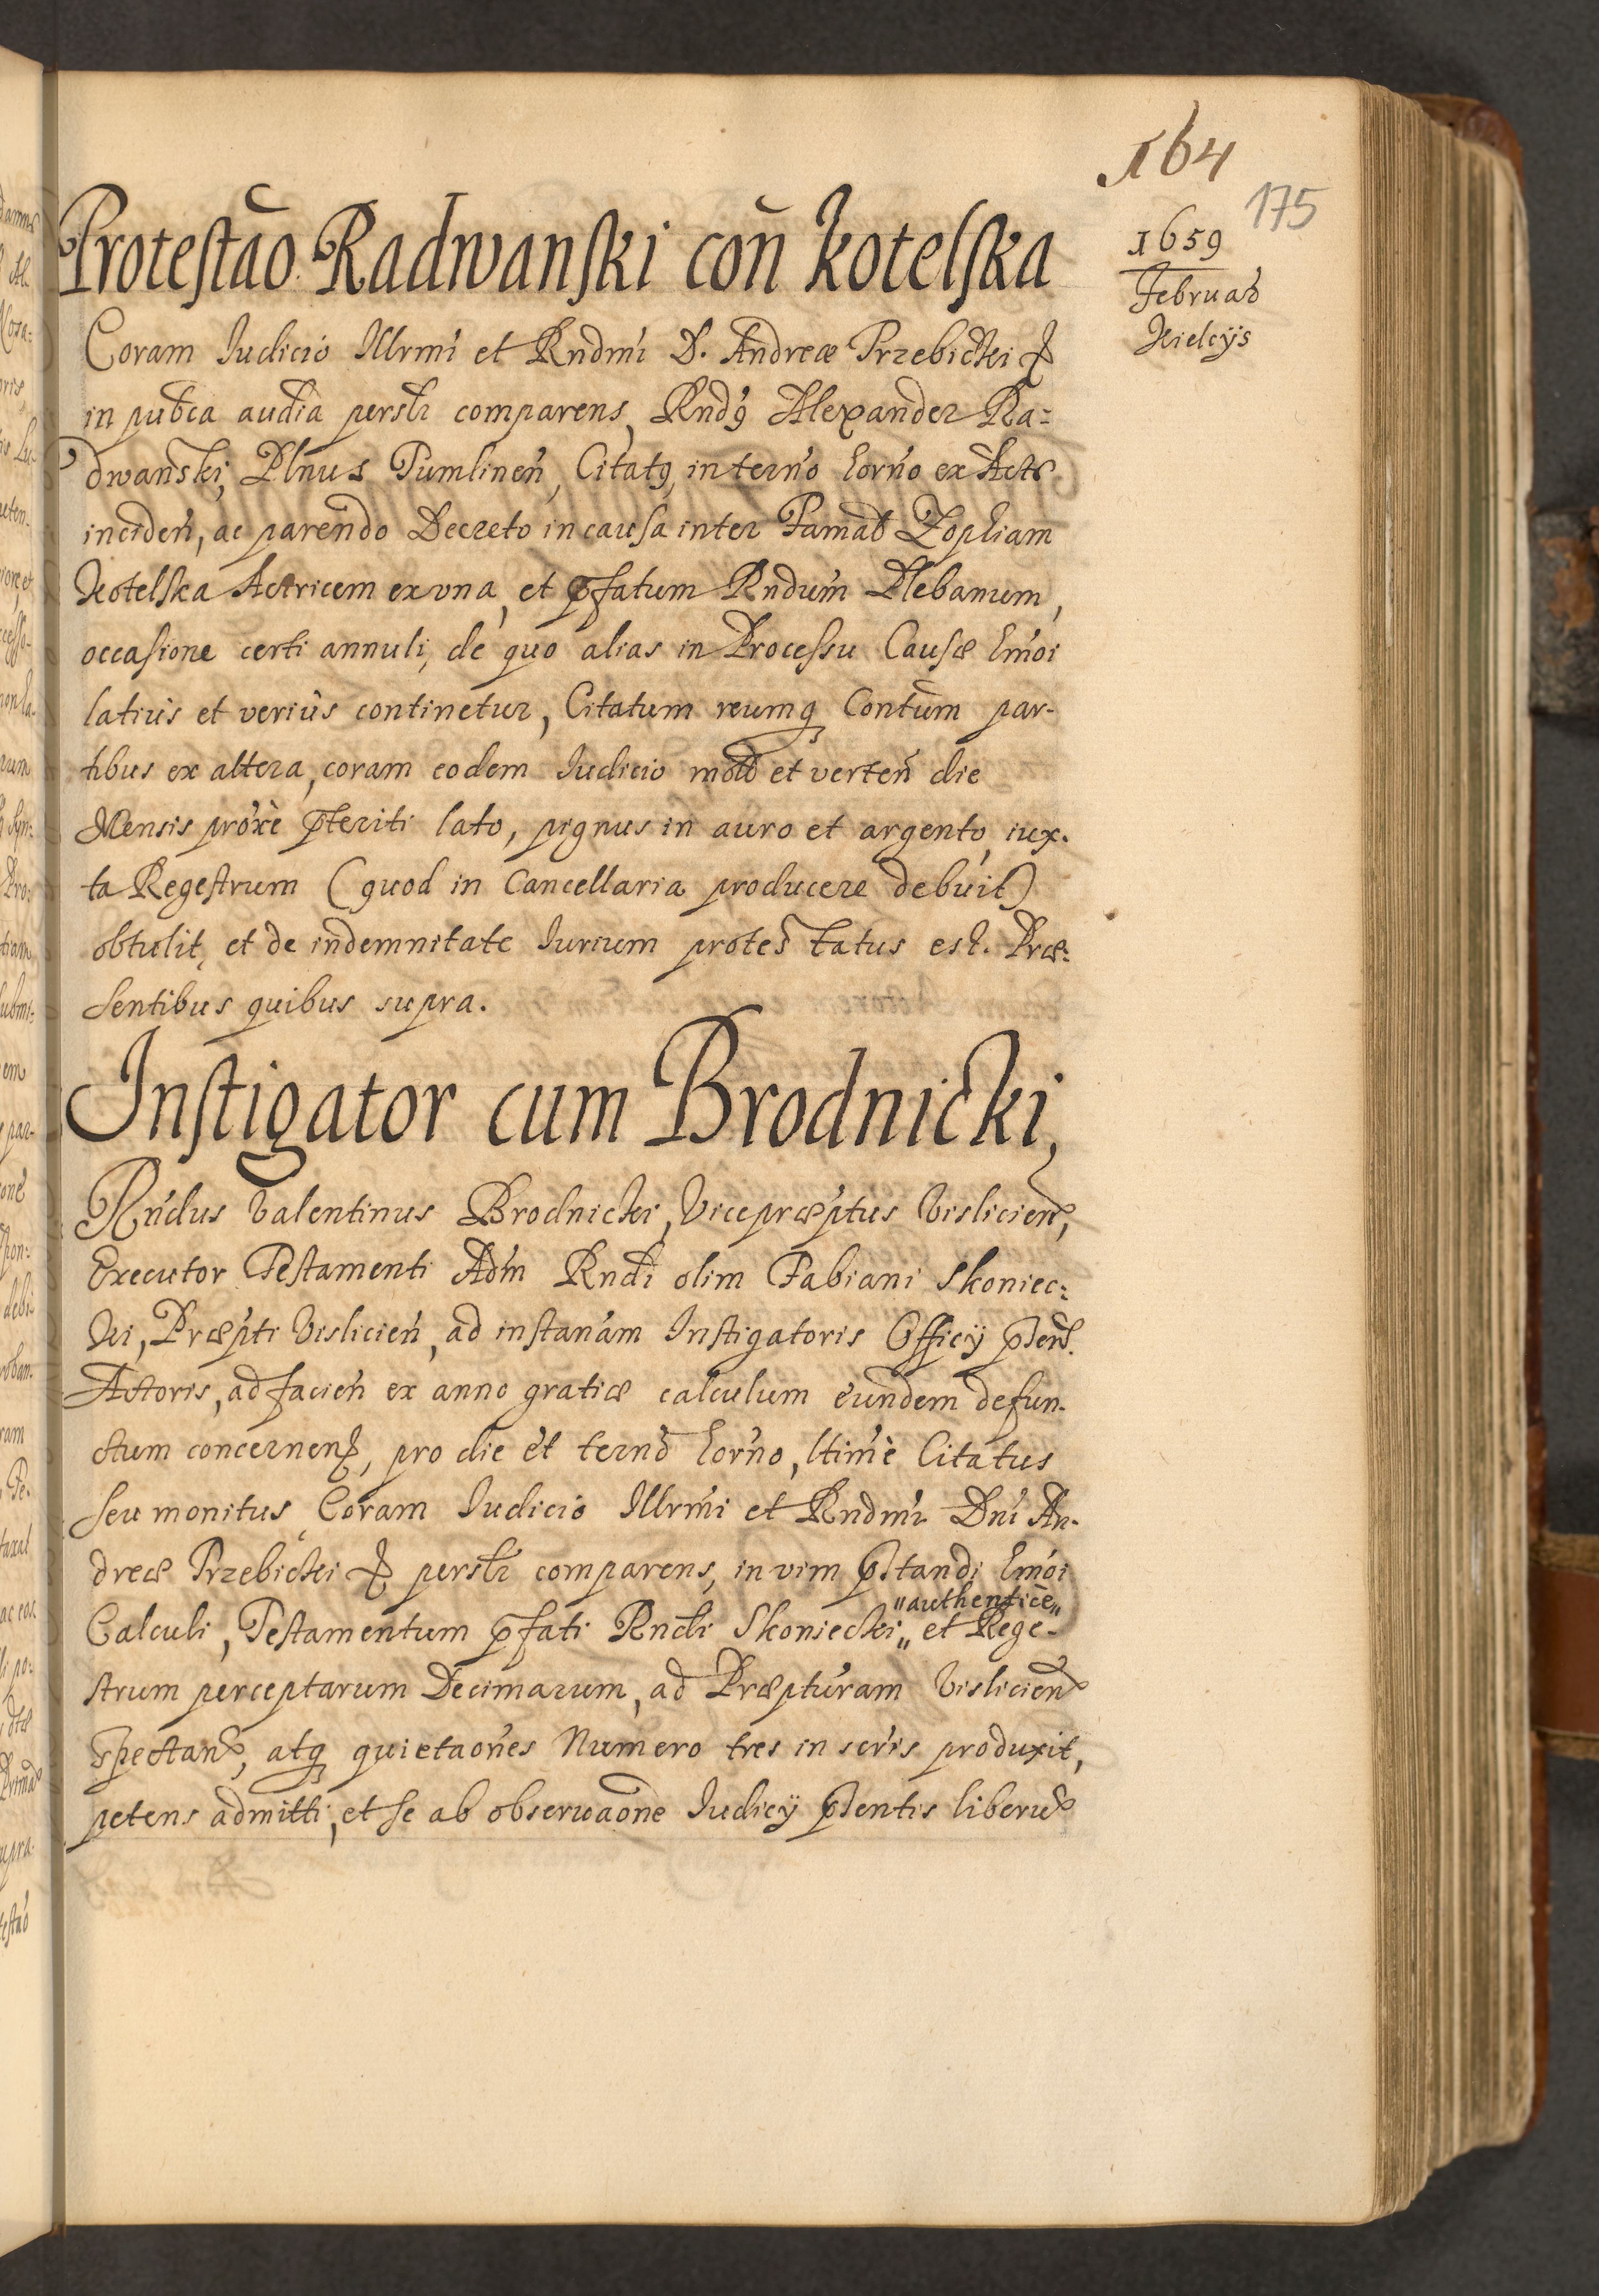 164
175
1659
Februar̃
Kielcÿs
Protestão Radwanski coñ kotelska
Coram Iudicio Illrmi et Rndmi D. Andreæ Przebicki
in pubca audia perslr comparens, Rndꝯ Alexander Ra=
dwanski, Plnus Tumlineñ, Citatꝯ, in terno hor̃no ex Actr
incideñ, ac parendo Decreto in causa inter Famat Zophiam
Kotelska Actricem ex vna, et p̃fatum Rndum Plebanum,
occasione certi annuli, de quo alias in Processu Causæ hmoi
latius et verius continetur, Citatum reumqꝫ Contum par-
tibus ex altera, coram eodem Iudicio mot et verteñ die
Mensis proxè p̃teriti lato, pignus in auro et argento, iux.
ta Regestrum (quod in Cancellaria producere debuit)
obtulit, et de indemnitate Iurium protes tatus est. Præ:
sentibus quibus supra.
Instigator cum Brodnicki,
Rndus Valentinus Brodnicki, Vicepræptus Vislicieñ,
Executor Testamenti Adm Rndi olim Fabiani Skoniec:
ki, Præpti Vislicieñ, ad instanam Instigatoris Officÿ p̃sent.
Actoris, ad facieñ ex anno gratiæ calculum eundem defun.
ctum concernen, pro die et terno hor̃no, ltimè Citatus
seu monitus, Coram Iudicio Illrmi et Rndmi Dni An.
dreæ Przebicki perslr comparens, in vim p̃standi hmoi
"authenticè"
Calculi, Testamentum p̃fati Rndi Skoniecki,, et Rege-
strum perceptarum Decimarum, ad Præpturam Vislicien
spectan, atqꝫ quietaones Numero tres in scris produxit,
petens admitti, et se ab obseruaone Iudicÿ p̃sentis liberu